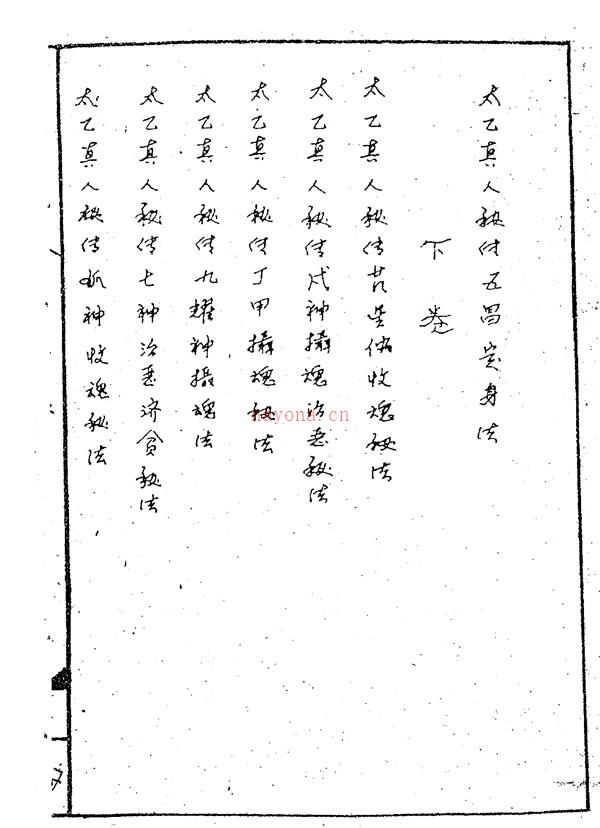 太乙真人秘传五昌定身法
下卷
太乙真人秘传收魂秘法
太乙真人秘传戊神攝魂治恶秘法
太乙真人秘传丁甲攝魂秘法
太乙真人秘传九耀神攝魂法
太乙真人秘传七神治恶济贫秘法
太乙真人秘传神收魂秘法
nayona.cn